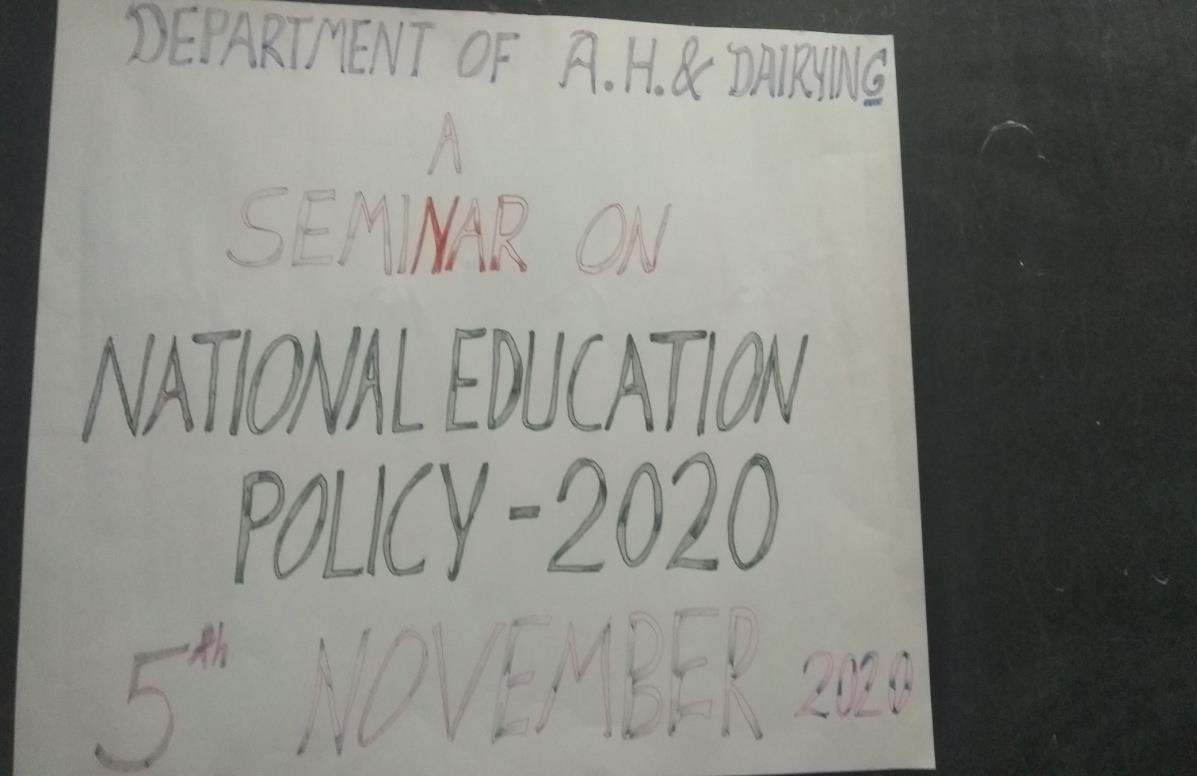 DEPARTMENT OF A.H. & DAIRYING
A
SEMINAR ON
NATIONAL EDUCATION
POLICY - 2020
5th NOVEMBER 2020